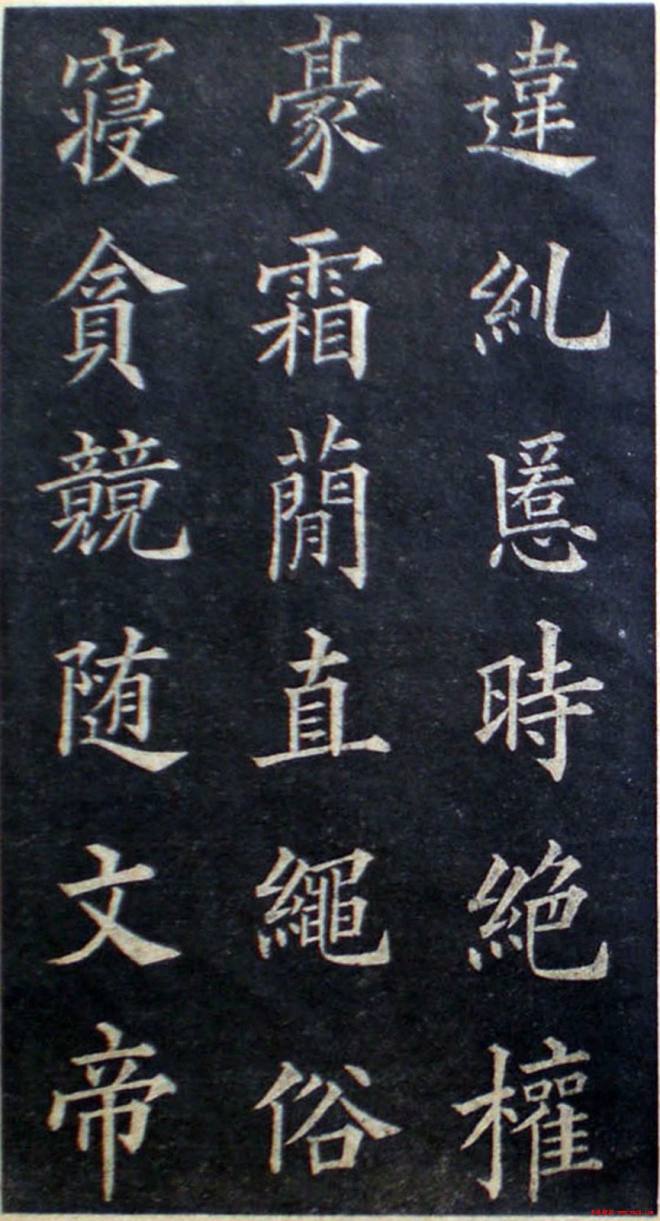 違糺慝時絶權
豪霜簡直繩俗
寝貪競随文帝